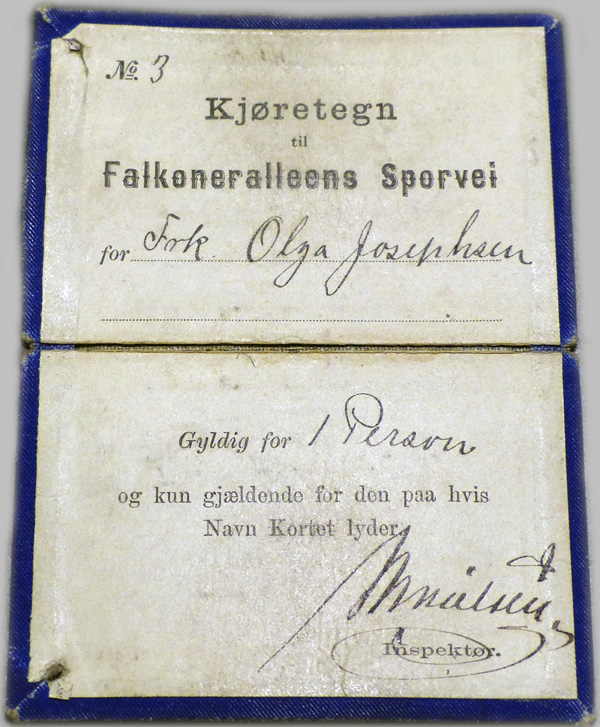 №. 3
Kjøretegn
til
Falkoneralleens Sporvei
for Frk. Olga Josephsen
Gyldig for 1 Person
og kun gjældende for den paa hvis
Navn Kortet lyder.
Inspektør.